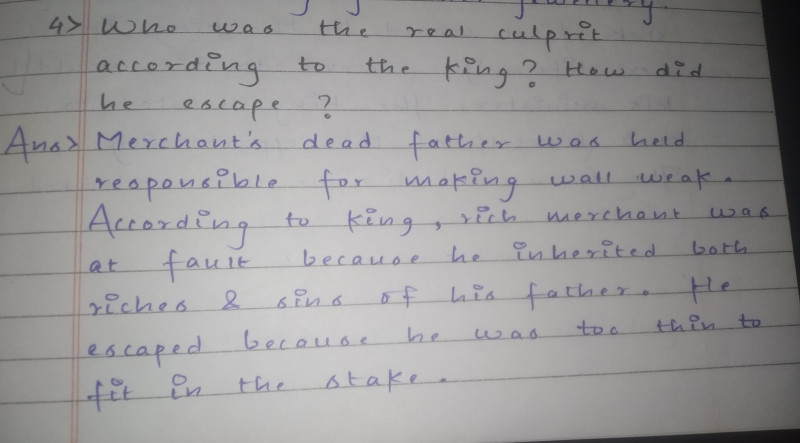 4> Who was the real culprit
according to the king? How did
he escape?
Ans> Merchant's dead father was held
responsible for making wall weak.
According to king, rich merchant was
at fault because he inherited both
riches & sins of his father. He
escaped because he was too thin to
fit in the stake.